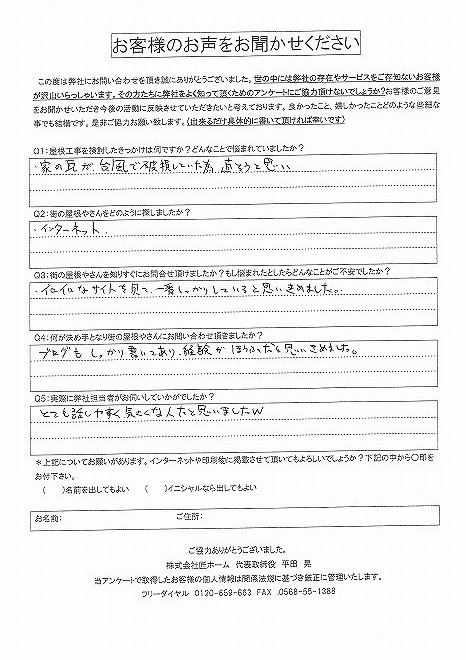 お客様のお声をお聞かせください
この度は弊社にお問い合わせを頂き誠にありがとうございました。世の中には弊社の存在やサービスをご存知ないお客様
が沢山いらっしゃいます。その方たちに弊社をよく知って頂くためのアンケートにご協力頂けないでしょうか?お客様のご意見
をお聞かせいただき今後の活動に反映させていただきたいと考えております。良かったこと、嬉しかったことどのような些細な
事でも結構です。是非ご協力お願い致します。(出来るだけ具体的に書いて頂ければ幸いです)
Q1:屋根工事を検討したきっかけは何ですか?どんなことで悩まれていましたか?
・家の瓦が、台風で破損していた為、直そうと思い
Q2:街の屋根やさんをどのように探しましたか?
・インターネット.
Q3:街の屋根やさんを知りすぐにお問合せ頂けましたか?もし悩まれたとしたらどんなことがご不安でしたか?
・イロイロなサイトを見て、一番しっかりしていると思いきめました。
Q4:何が決め手となり街の屋根やさんにお問い合わせ頂きましたか?
ブログもしっかり書いてあり、経験がほうふだと思いきめました。
Q5:実際に弊社担当者がお伺いしていかがでしたか?
とても話しやすく気さくな人だと思いましたW
*上記についてお願いがあります。インターネットや印刷物に掲載させて頂いてもよろしいでしょうか?下記の中から〇印を
お付下さい。
( )名前を出してもよい ( )イニシャルなら出してもよい
お名前: ご住所:
ご協力ありがとうございました。
株式会社匠ホーム 代表取締役 平田 晃
当アンケートで取得したお客様の個人情報は関係法規に基づき厳正に管理いたします。
フリーダイヤル 0120-659-663 FAX .0568-55-1388